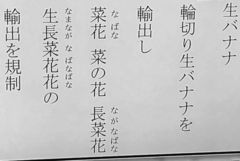 生バナナ
輪切り生バナナを
輸出し
菜花 菜の花 長菜花
なばな なのはな ながなばな
生長菜花花の
なまながなばなばな
輸出を規制